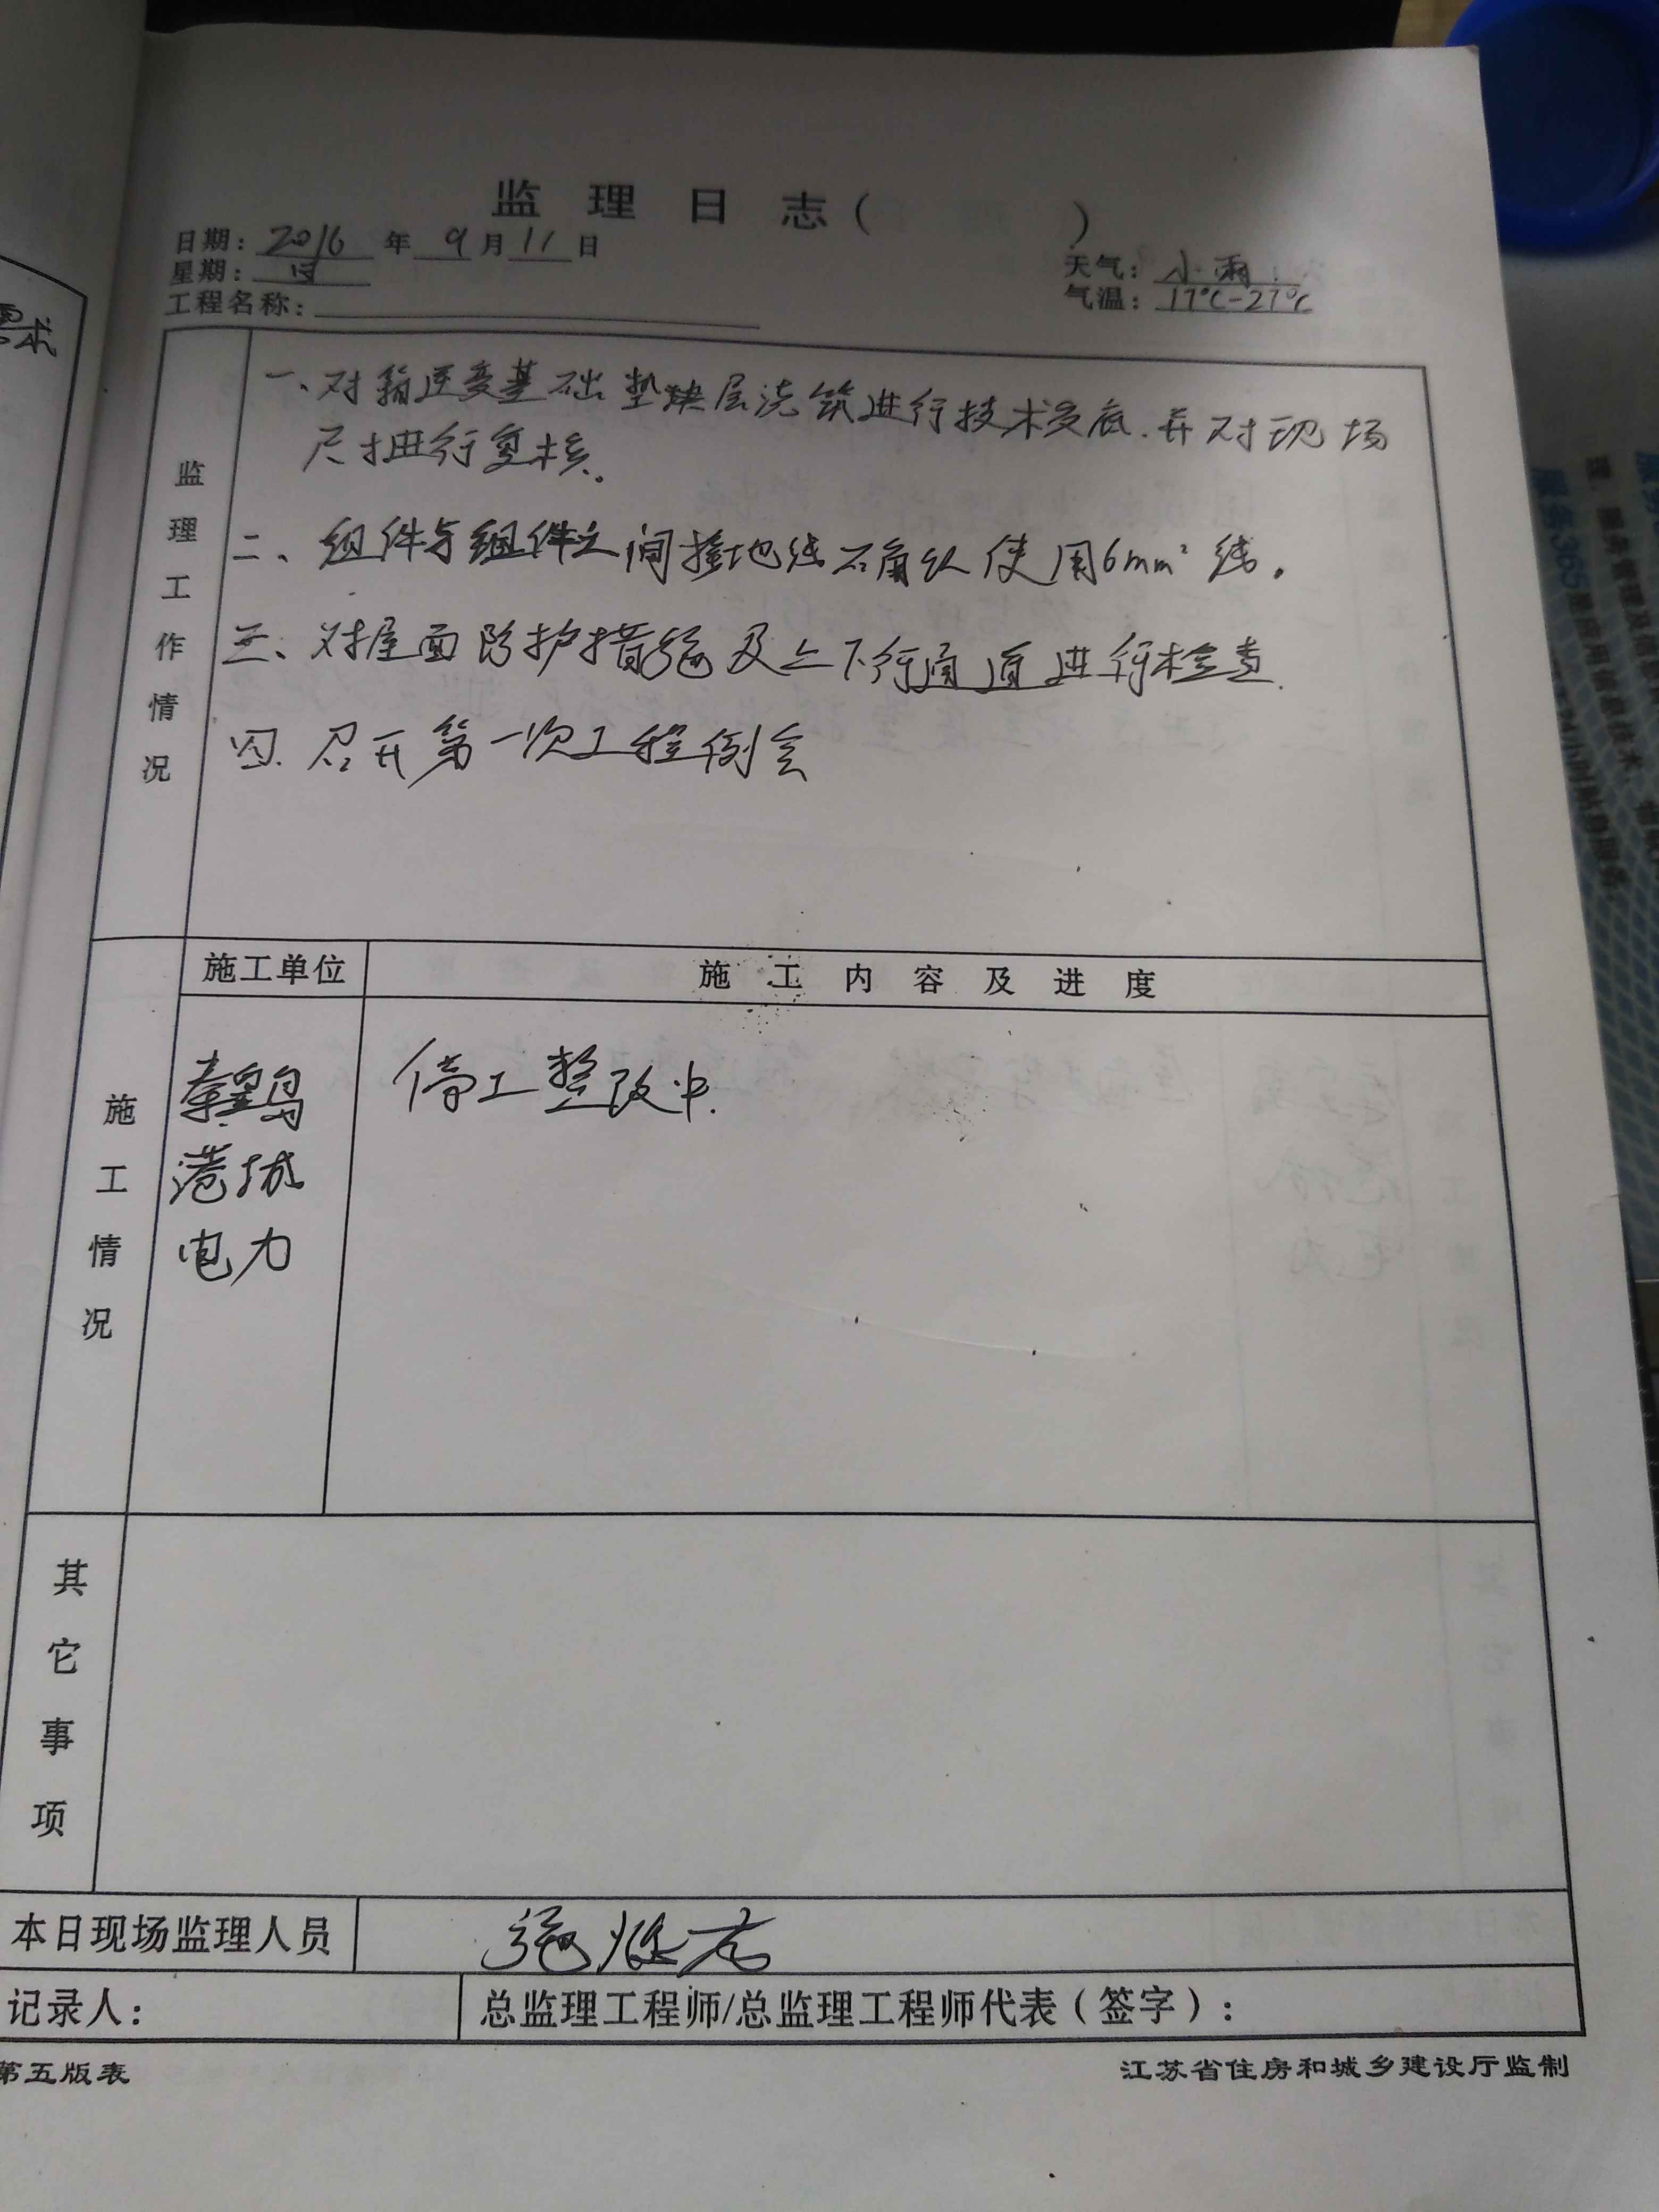 监理日志( )
日期：2016年9月11日
星期：日
天气：小雨
工程名称：
气温：17℃-27℃
监理工作情况
一、对箱逆变基础垫块层浇筑进行技术交底.并对现场
尺寸进行复核。
二、组件与组件之间接地线不确认使用6mm²线。
三、对屋面防护措施及上下行通道进行检查.
四.召开第一次工程例会
施工单位
施工内容及进度
施工情况
秦皇岛
港城
电力
停工整改中.
其它事项
本日现场监理人员
记录人：
总监理工程师/总监理工程师代表（签字）：
第五版表
江苏省住房和城乡建设厅监制